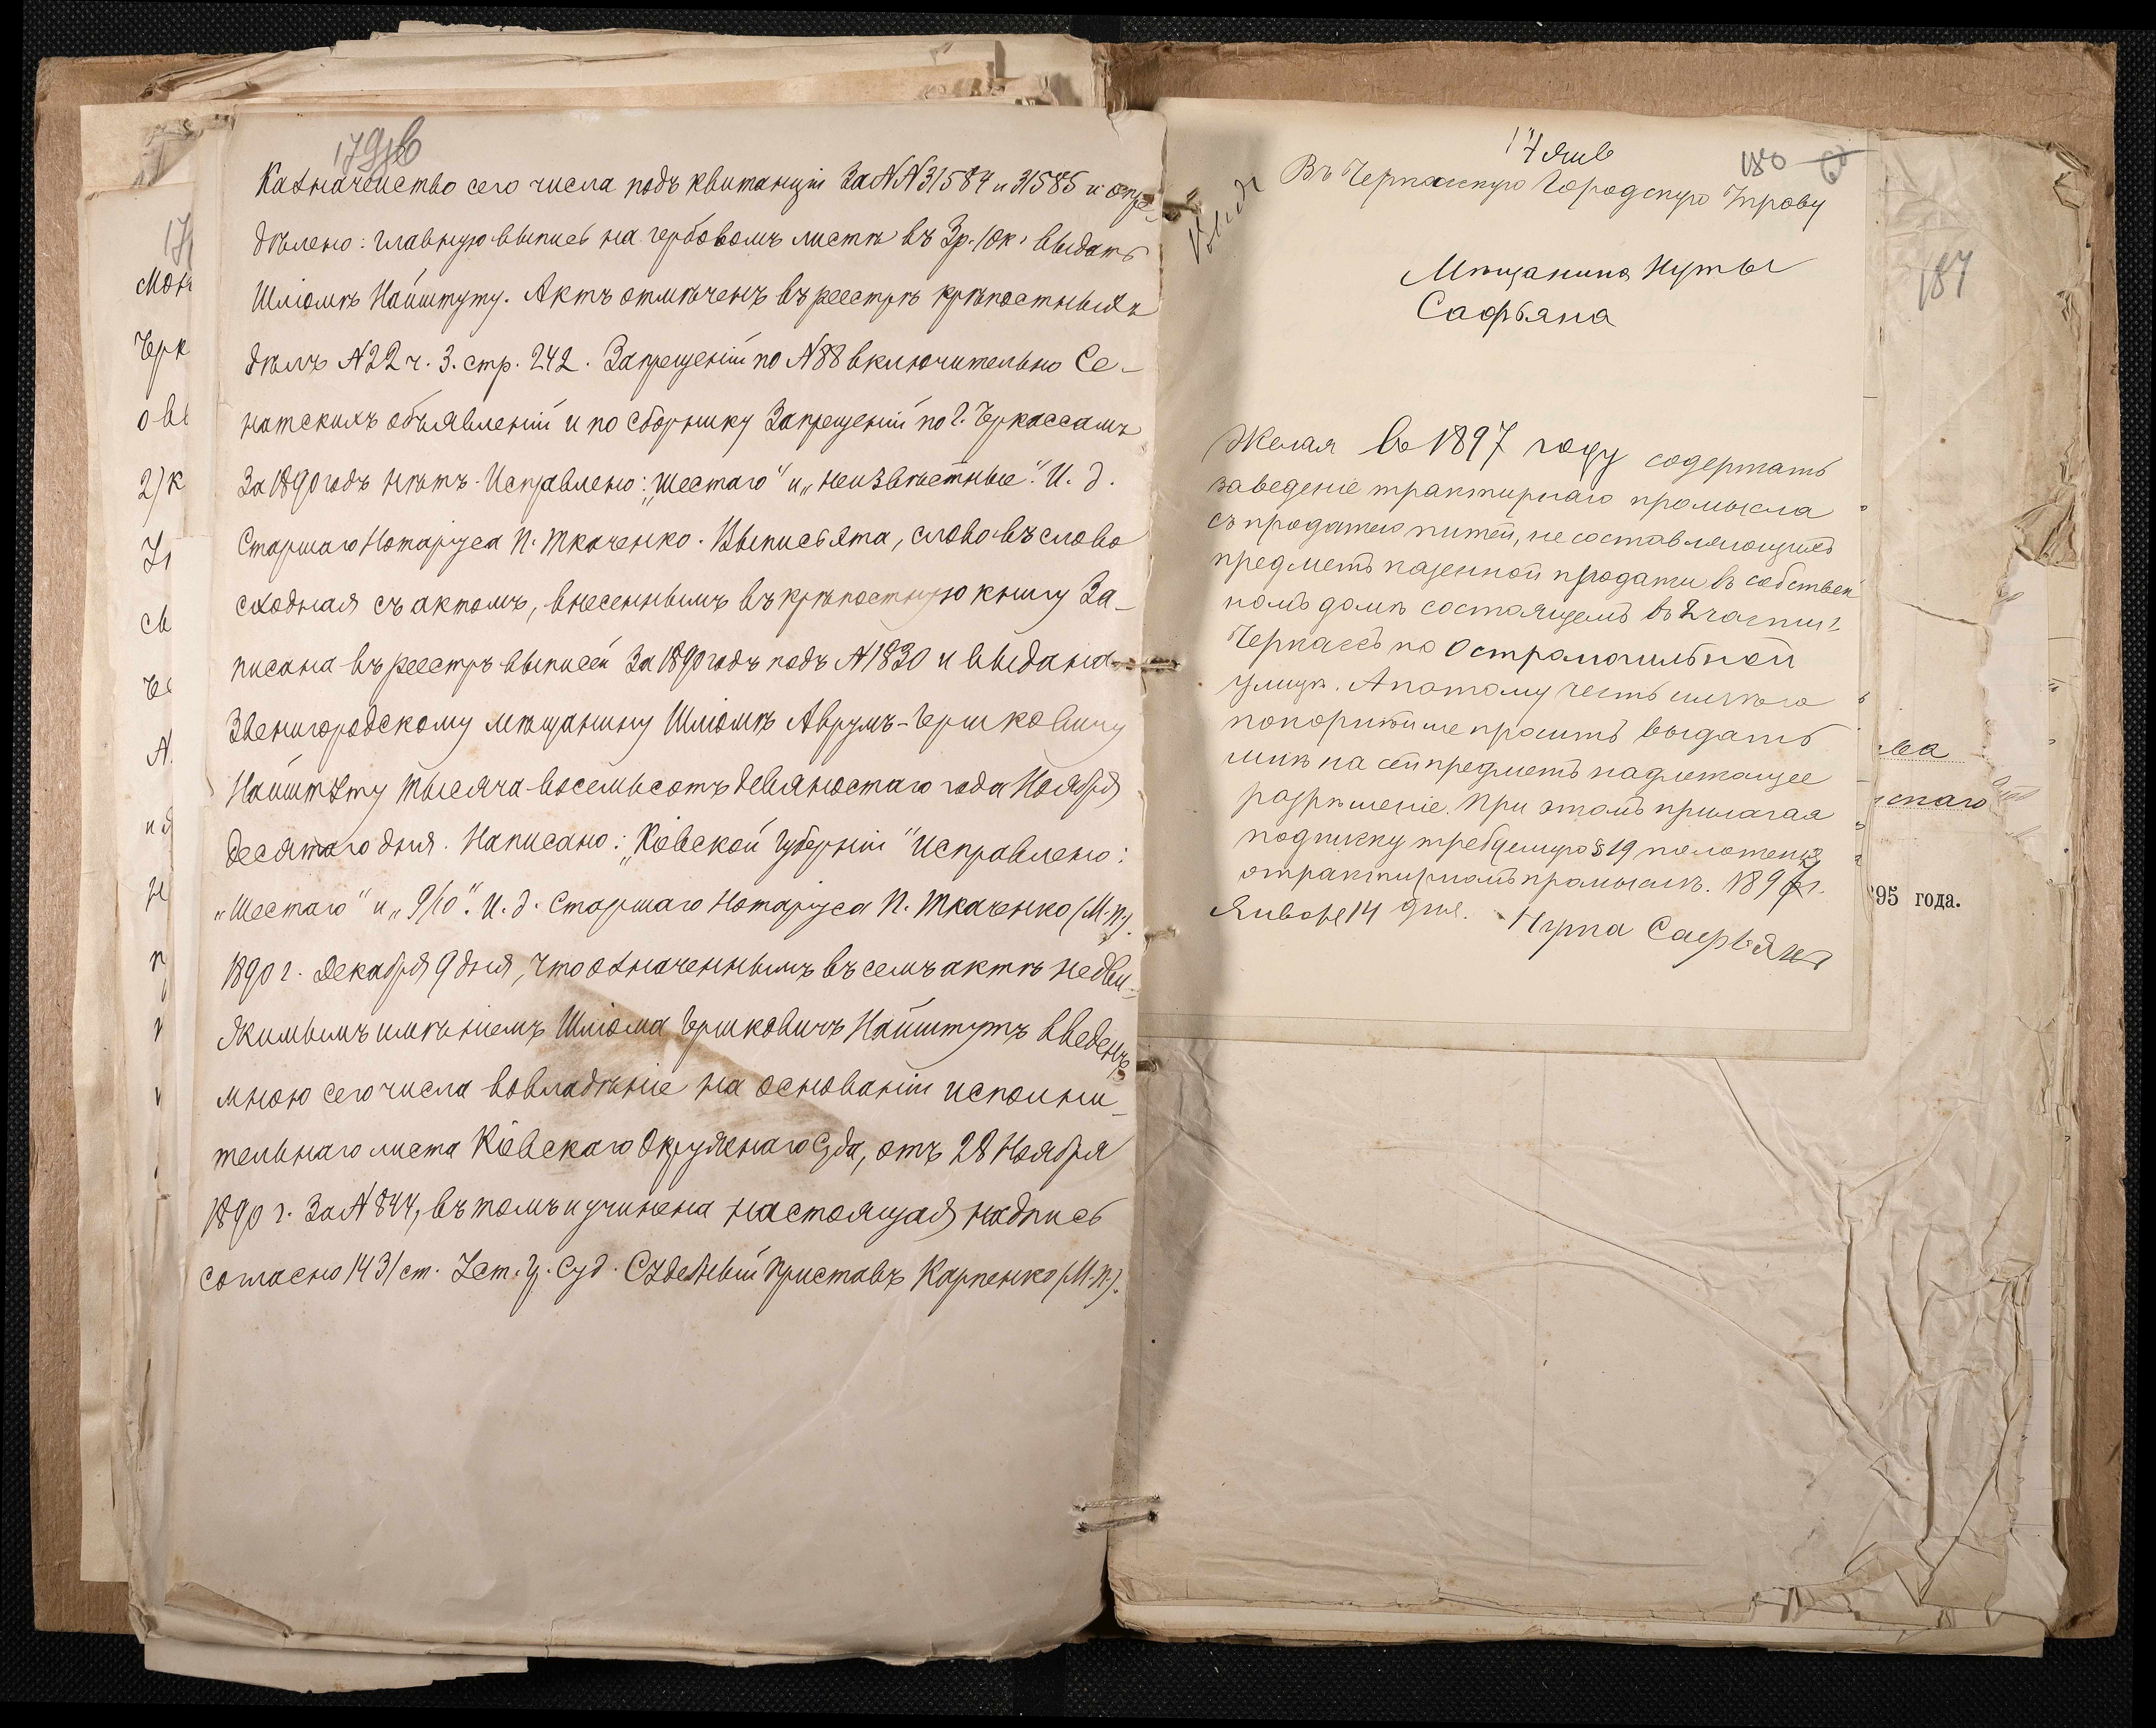 179об
Казначейство сего числа подъ квитанціи за NN 31584 и 31585 и опре-
дѣлено: главную выпись на гербовомъ листѣ въ 3р. 10к. выдать
Шліомѣ Найштуту. Актъ отмѣченъ въ реестрѣ крѣпостныхъ
дѣлъ N22 ч. 3. стр. 242. Запрещеній по N88 включительно Се-
натскихъ объявленій и по сборнику Запрещеній по г. Черкассамъ
за 1890 годъ нѣтъ. Исправлено: „шестаго" и „неизвѣстные". И. д.
Старшаго Нотаріуса П. Ткаченко. Выпись эта, слово въ слово
сходная съ актомъ, внесеннымъ въ крѣпостную книгу за-
писана въ реестръ выписей за 1890 годъ подъ N1830 и выдана
Звенигородскому мѣщанину Шліомѣ Аврумъ-Гершковичу
Найштуту тысяча восемьсотъ девяностаго года Ноября
десятаго дня. Написано: „Кіевской губерніи" исправлено:
„шестаго" и „9/10". И. д. Старшаго Нотаріуса П. Ткаченко (М.П.).
1890 г. Декабря 9 дня, что означеннымъ въ семъ актѣ недви-
жимымъ имѣніемъ Шліома Гершковичъ Найштутъ введенъ
мною сего числа во владѣніе на основаніи исполни-
тельнаго листа Кіевскаго Окружнаго Суда, отъ 28 Ноября
1890 г. за N 844, въ томъ и учинена настоящая надпись
согласно 1431 ст. Уст. Гр. Суд. Судебный Приставъ Карпенко (М.П.).
мон
Черк
о вы
2) к
св
17 Янв
180
Въ Черкасскую Городскую Управу
Мѣщанина Нуты
Сафьяна
Желая въ 1897 году содержать
заведеніе трактирнаго промысла
съ продажею питей, не составляющихъ
предметъ казенной продажи въ собствен
номъ домѣ состоящемъ въ 2 части г.
Черкассъ по Остромогильной
улицѣ. А потому честь имѣю
покорнѣйше просить выдать
мнѣ на сей предметъ надлежащее
разрѣшеніе. При этомъ прилагая
подписку требуемую § 19 положенія
о трактирномъ промыслѣ. 1897 г.
Января 14 дня. Нута Сафьянъ
187
ва
скаго
95 года.